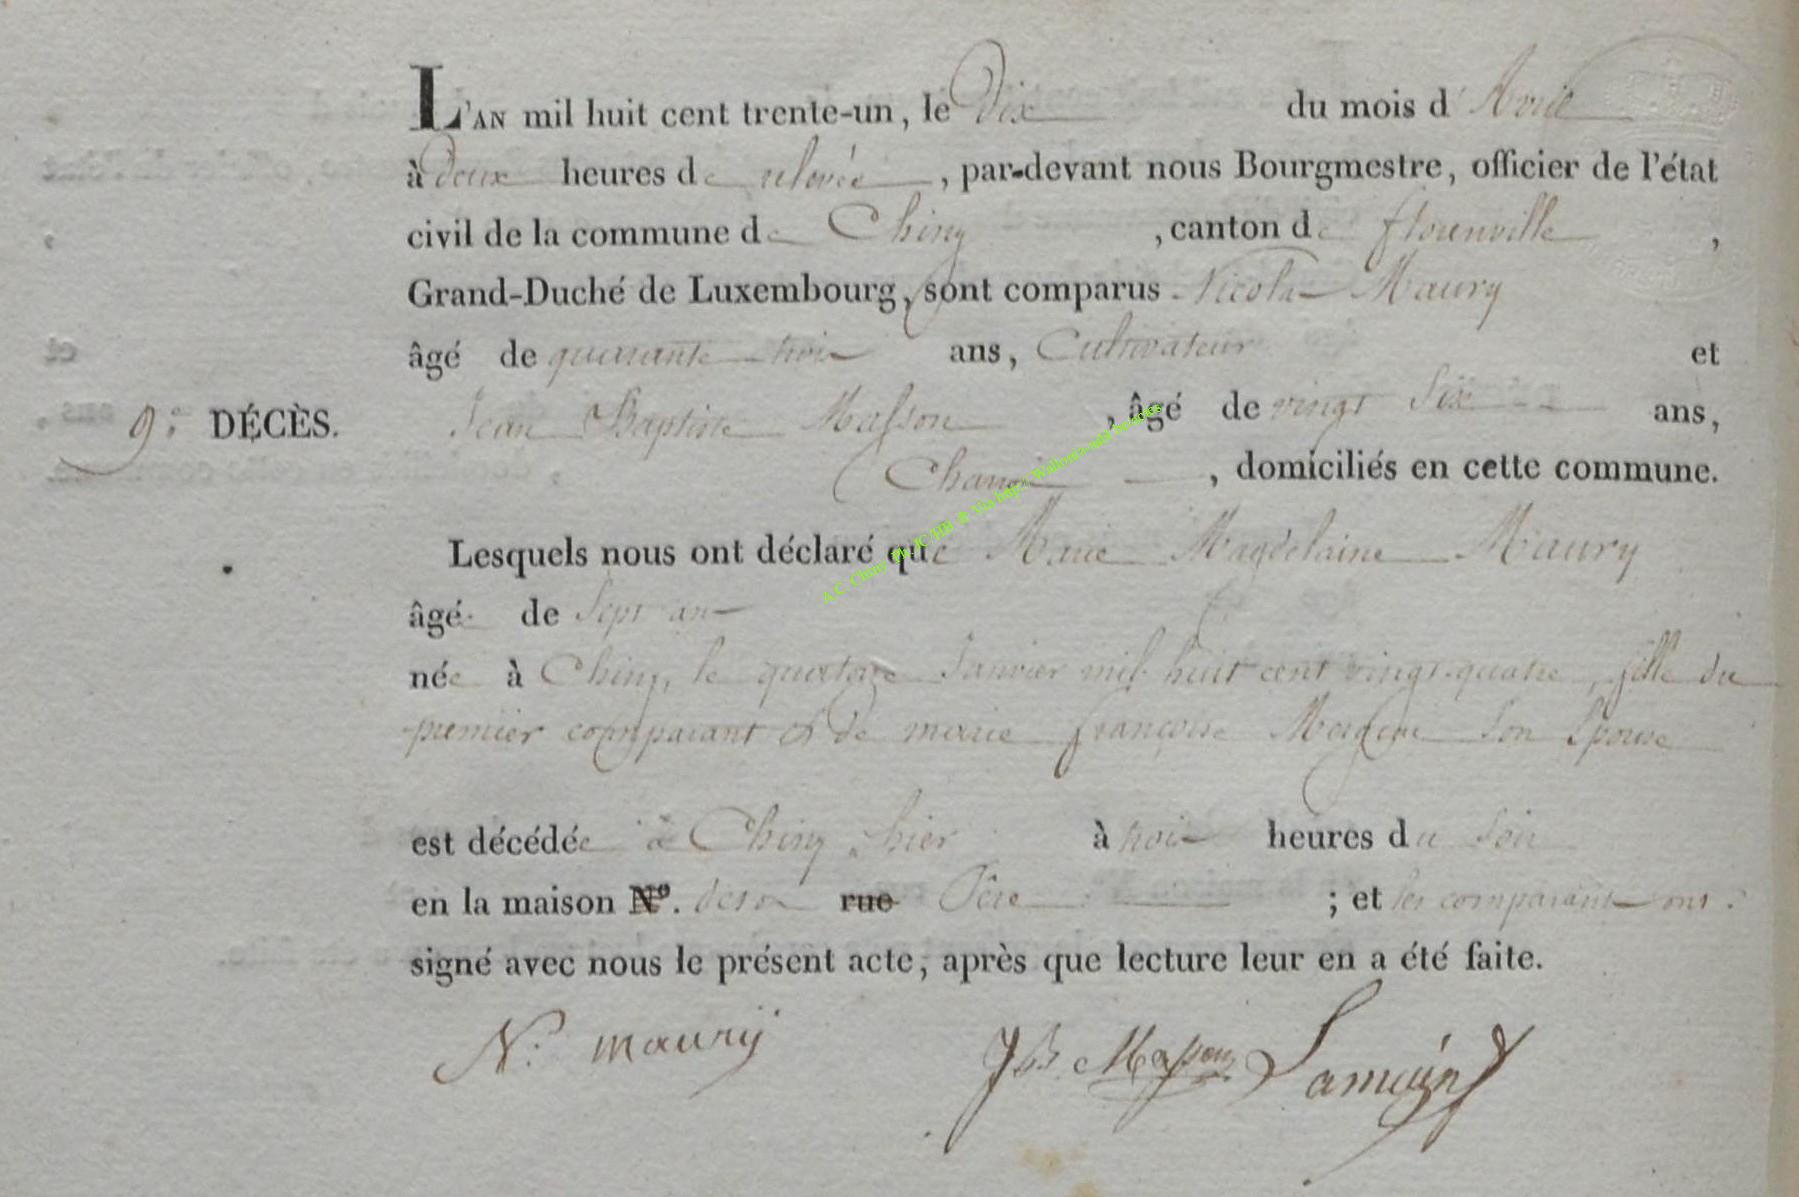 L'AN mil huit cent trente-un, le Dix du mois d'Avril
à Deux heures de relevée, par-devant nous Bourgmestre, officier de l'état
civil de la commune de Chiny, canton de florenville,
Grand-Duché de Luxembourg, sont comparus Nicolas Maury
âgé de quarante trois ans, Cultivateur et
9e DÉCÈS. Jean Baptiste Masson, âgé de vingt Six ans,
domiciliés en cette commune.
Lesquels nous ont déclaré que Marie Magdelaine Maury
âgée de Sept ans
née à Chiny, le quatorze Janvier mil huit cent vingt-quatre, fille du
premier comparant & de marie françoise son Epouse
est décédée à Chiny hier à trois heures du Soir
en la maison N°. de son rue Père ; et les comparants ont
signé avec nous le présent acte, après que lecture leur en a été faite.
N. maurÿ JB Masson
A.C. Chiny